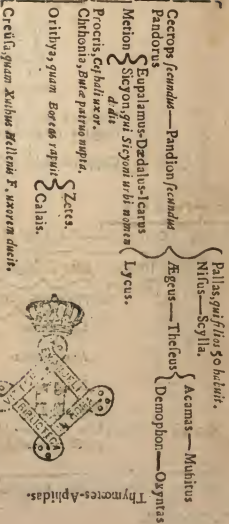 Cecrops secundus — Pandion secundus
Pandorus
Eupalamus-Dædalus-Icarus
Merion
Sicyon, qui Sicyoni urbi nomen
dedit
Procris, Cephali uxor.
Chthonia, Butæ patruo nupta.
Orithya, quam Boreas rapuit
Zetes.
Calais.
Creüsa, quam Xuthus Hellenis F. uxorem ducit.
Pallas, qui filios 50 habuit.
Nisus — Scylla.
Ægeus — Theseus
Lycus.
Acamas — Muhitus
Demophon — Oxyntas
Thymœtes-Aphidas.